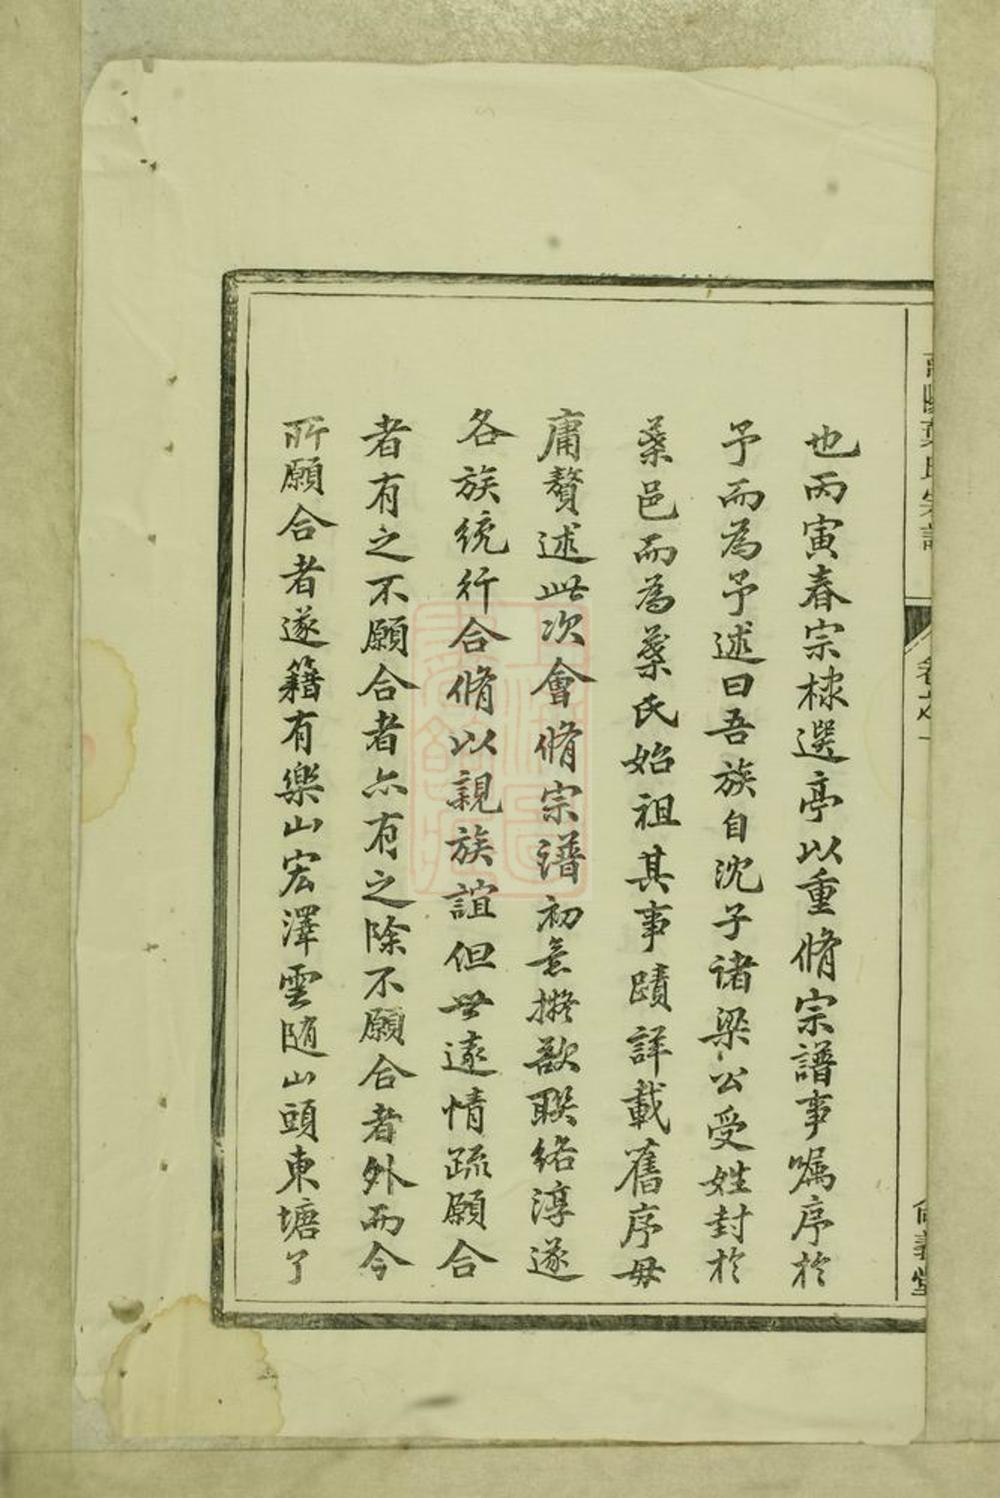 也丙寅春宗棣選亭以重脩宗譜事囑序於
予而為予述曰吾族自沈子諸梁公受姓封於
葉邑而為葉氏始祖其事蹟詳載舊序毋
庸贅述此次會脩宗譜初意擬欲聯絡淳遂
各族統行合脩以親族誼但世遠情疏願合
者有之不願合者亦有之除不願合者外而今
所願合者遂籍有樂山宏澤雲随山頭東塘了
卷之一
尚義堂